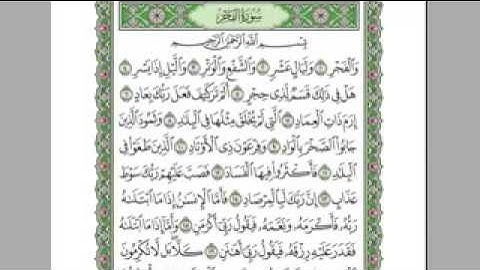 سُورَةُ الفَجْرِ
بِسْمِ ٱللَّهِ ٱلرَّحْمَٰنِ ٱلرَّحِيمِ
وَٱلْفَجْرِ ١ وَلَيَالٍ عَشْرٍ ٢ وَٱلشَّفْعِ وَٱلْوَتْرِ ٣ وَٱلَّيْلِ إِذَا يَسْرِ ٤
هَلْ فِى ذَٰلِكَ قَسَمٌ لِّذِى حِجْرٍ ٥ أَلَمْ تَرَ كَيْفَ فَعَلَ رَبُّكَ بِعَادٍ ٦
إِرَمَ ذَاتِ ٱلْعِمَادِ ٧ ٱلَّتِى لَمْ يُخْلَقْ مِثْلُهَا فِى ٱلْبِلَٰدِ ٨ وَثَمُودَ ٱلَّذِينَ
جَابُوا۟ ٱلصَّخْرَ بِٱلْوَادِ ٩ وَفِرْعَوْنَ ذِى ٱلْأَوْتَادِ ١٠ ٱلَّذِينَ طَغَوْا۟ فِى
ٱلْبِلَٰدِ ١١ فَأَكْثَرُوا۟ فِيهَا ٱلْفَسَادَ ١٢ فَصَبَّ عَلَيْهِمْ رَبُّكَ سَوْطَ
عَذَابٍ ١٣ إِنَّ رَبَّكَ لَبِٱلْمِرْصَادِ ١٤ فَأَمَّا ٱلْإِنسَٰنُ إِذَا مَا ٱبْتَلَىٰهُ
رَبُّهُۥ فَأَكْرَمَهُۥ وَنَعَّمَهُۥ فَيَقُولُ رَبِّىٓ أَكْرَمَنِ ١٥ وَأَمَّآ إِذَا مَا ٱبْتَلَىٰهُ
فَقَدَرَ عَلَيْهِ رِزْقَهُۥ فَيَقُولُ رَبِّىٓ أَهَٰنَنِ ١٦ كَلَّا بَل لَّا تُكْرِمُونَ